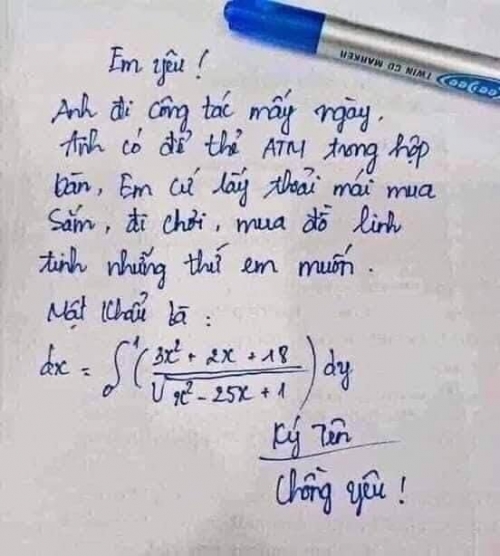 Em yêu !
Anh đi công tác mấy ngày.
Anh có để thẻ ATM trong hộp
bàn, Em cứ lấy thoải mái mua
Sắm, đi chơi, mua đồ linh
tinh những thứ em muốn.
Mật khẩu là :
dx = ∫₀¹ ( (3x² + 2x + 18) / √(x² - 25x + 1) ) dy
Ký Tên
Chồng yêu !
TWIN CD MARKER